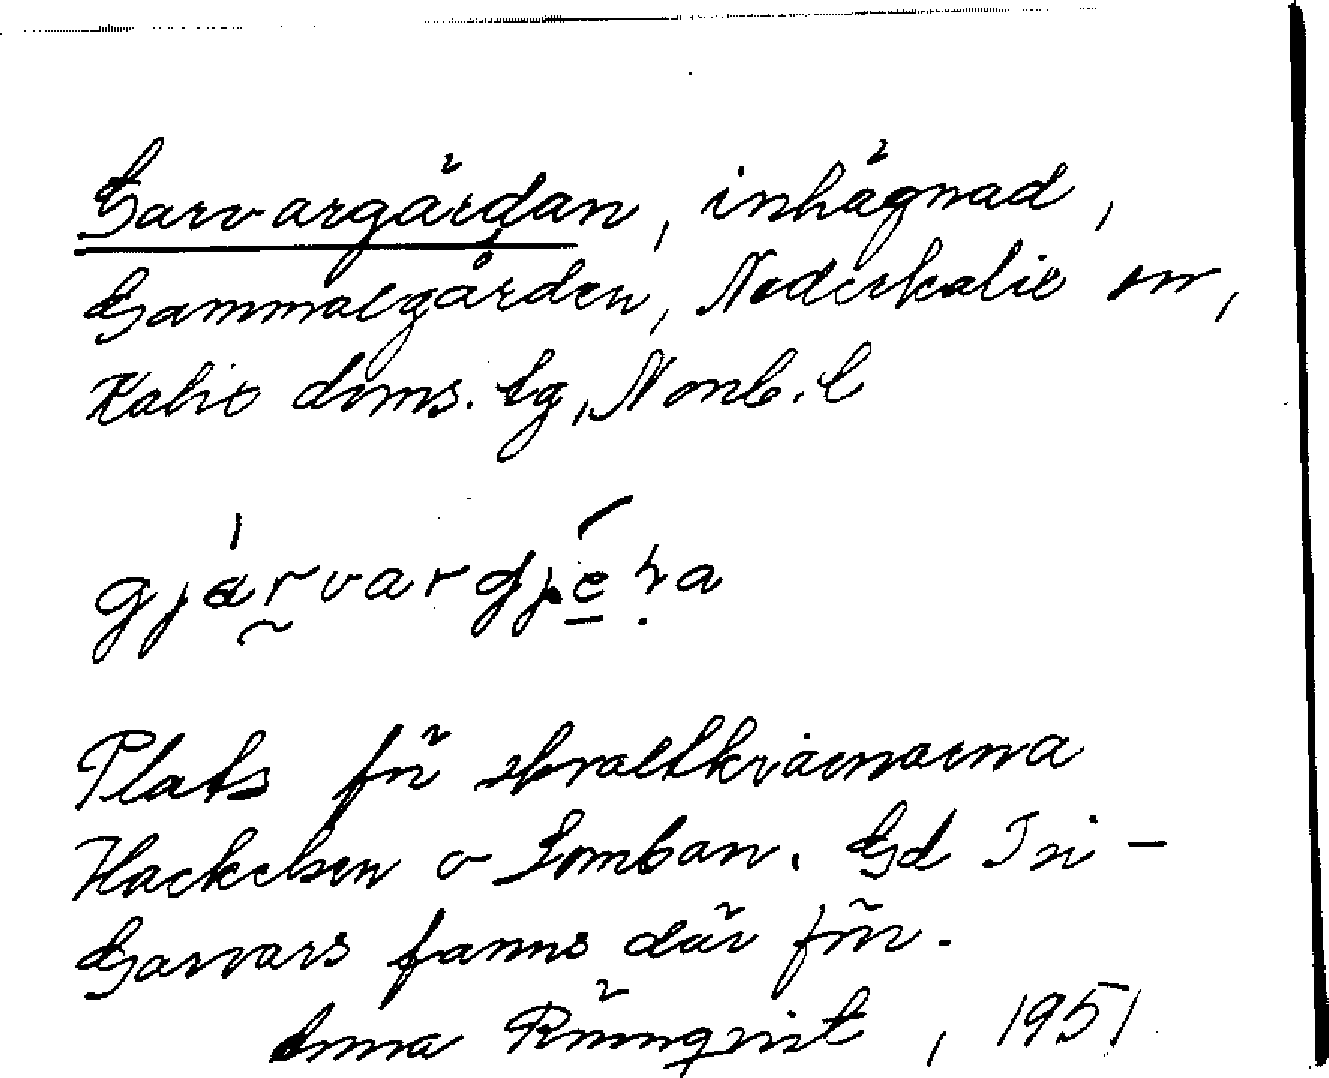 Garvargärdan, inhägnad,
Gammalgården, Nederkalix sn,
Kalix doms. lg, Norrb. l
gjarvargjera
Plats för skvaltkvarnarna
Hackelsen o Lomban. Gd Isi-
Garvars fanns där förr.
Anna Rönnqvist, 1951